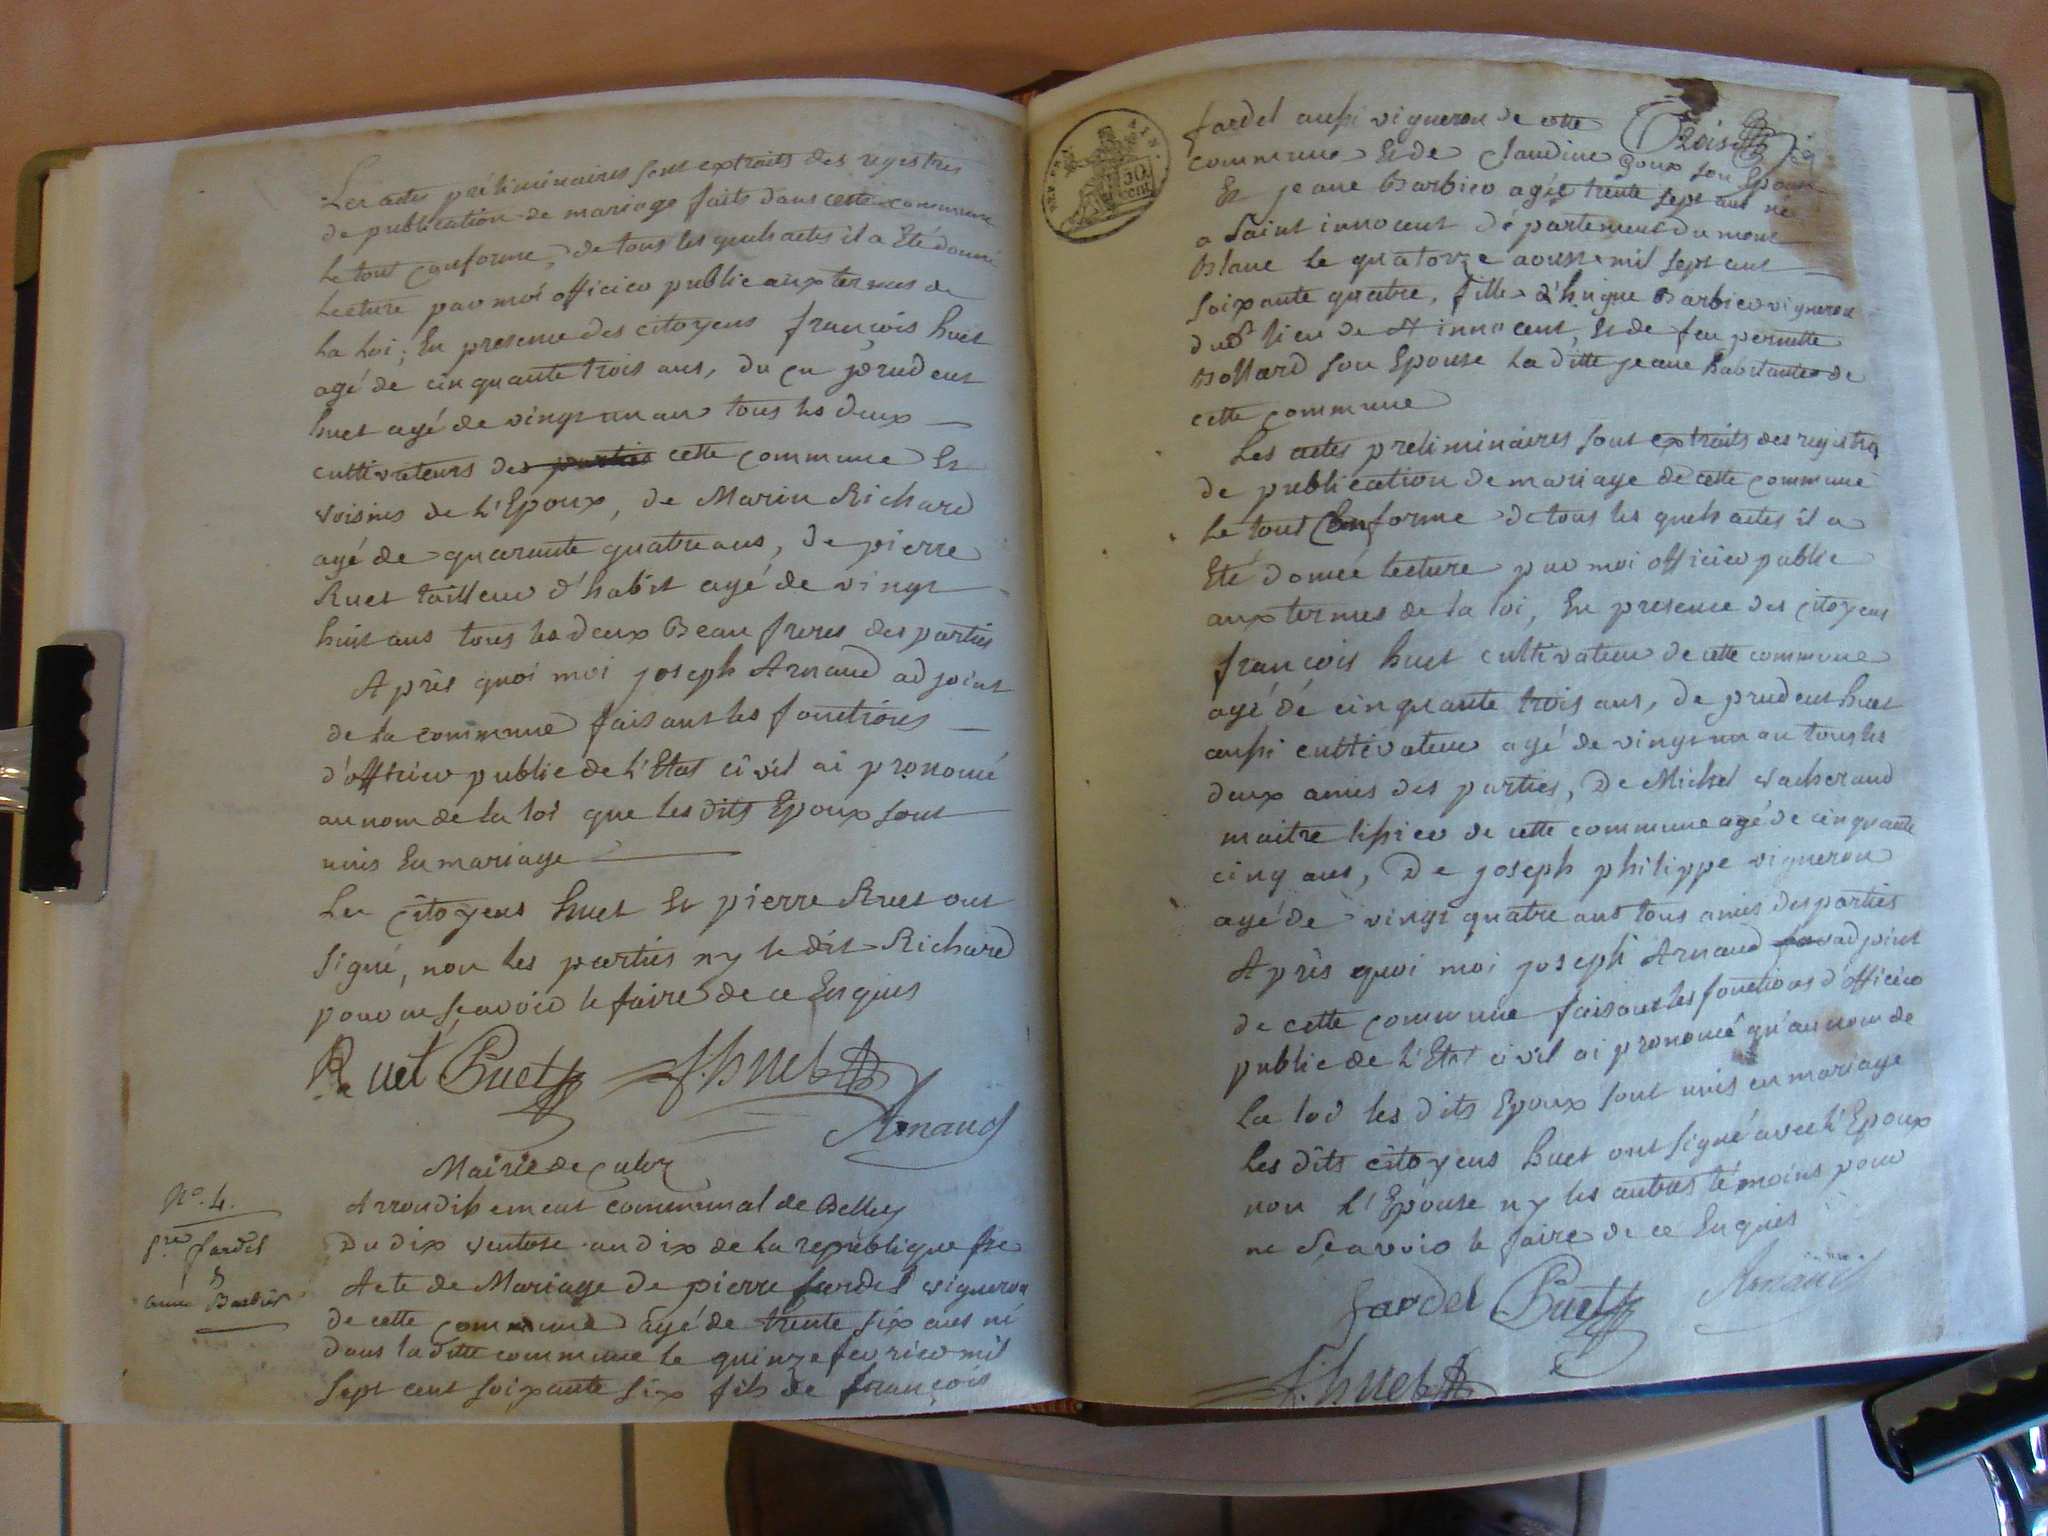 Les actes préliminaires sont extraits des regestres
de publication de mariage faits dans cette commune
Le tout conforme, de tous les quels actes il a Eté donné
Lecture par moi officier public aux termes de
La loi; En presence des citoyens françois huet
agé de cinquante trois ans, du prudent
huet agé de vingt un an tous les deux
cultivateurs des parties cette commune Et
voisins de L'Epoux, de Marin Richard
agé de quarante quatre ans, de pierre
Ruet tailleur d'habit agé de vingt
huit ans tous les deux Beau freres des parties
Après quoi moi joseph Arnaud adjoint
de la commune faisant les fonctions
d'officier public de L'Etat civil ai prononcé
au nom de la loi que les dits Epoux sont
unis En mariage
Les citoyens huet Et pierre Ruet ont
signé, non les parties ny le dit Richard
pour ne scavoir le faire de ce Enquis
Ruet Huet f. huet
Arnaud
Mairie de Culoz
Arrondissement communal de Belley
N°. 4.
Du dix ventose an dix de la republique fse
pre fardel
&
anne Barbier
Acte de Mariage de pierre fardel vigneron
de cette commune agé de trente six ans né
dans la ditte commune le quinze fevrier mil
sept cent soixante six fils de françois
fardel aussi vigneron de cette
Trois
commune Et de Claudine Goux son Epouse
Et jeane Barbier agée trente sept ans né
a Saint innocent Département du mont
Blanc le quatorze aoust mil sept cent
soixante quatre, fille d'hugue Barbier vigneron
dudt lieu de St innocent, Et de feu pernette
Bollard son Epouse La ditte jeane habitante de
cette commune
Les actes preliminaires sont extraits des registres
de publication de mariage de cette commune
Le tout Conforme de tous les quels actes il a
Eté donné Lecture par moi officier public
aux termes de la loi, En presence des citoyens
françois huet cultivateur de cette commune
agé de cinquante trois ans, de prudent huet
aussi cultivateur agé de vingt un an tous les
deux amis des parties, De Michel Vacherand
maitre tissier de cette commune agé de cinquante
cinq ans, De joseph philippe vigneron
agé de vingt quatre ans tous amis des parties
Après quoi moi joseph Arnaud adjoint
de cette commune faisant les fonctions d'officier
public de L'Etat civil ai prononcé qu'au nom de
La loi les dits Epoux sont unis en mariage
Les dits citoyens huet ont signé avec L'Epoux
non L'Epouse ny les autres témoins pour
ne Scavoir le faire de ce Enquis
fardel Huet Arnaud
f. huet